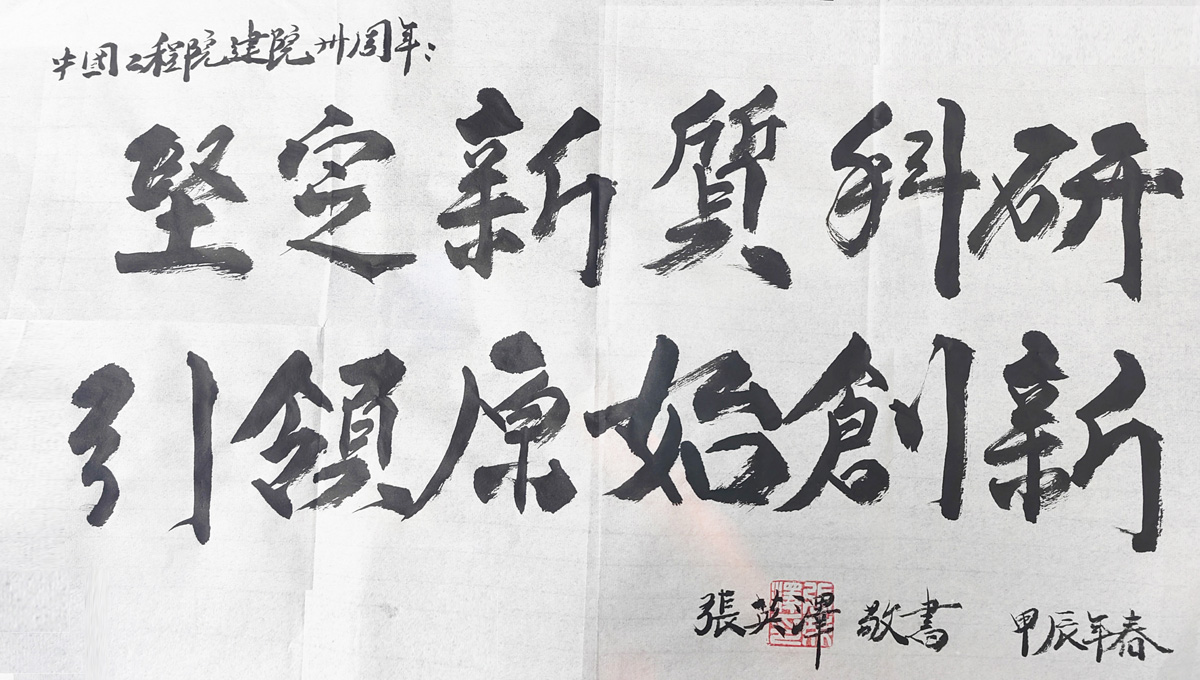 中国工程院建院卅周年：
堅定新質科研
引領原始創新
張英澤 敬書 甲辰年春